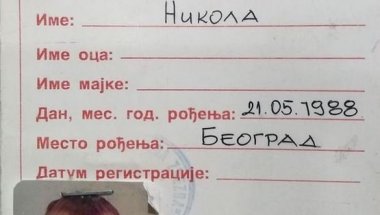 Име: Никола
Име оца:
Име мајке:
Дан, мес. год. рођења: 21.05.1988
Место рођења: БЕОГРАД
Датум регистрације: